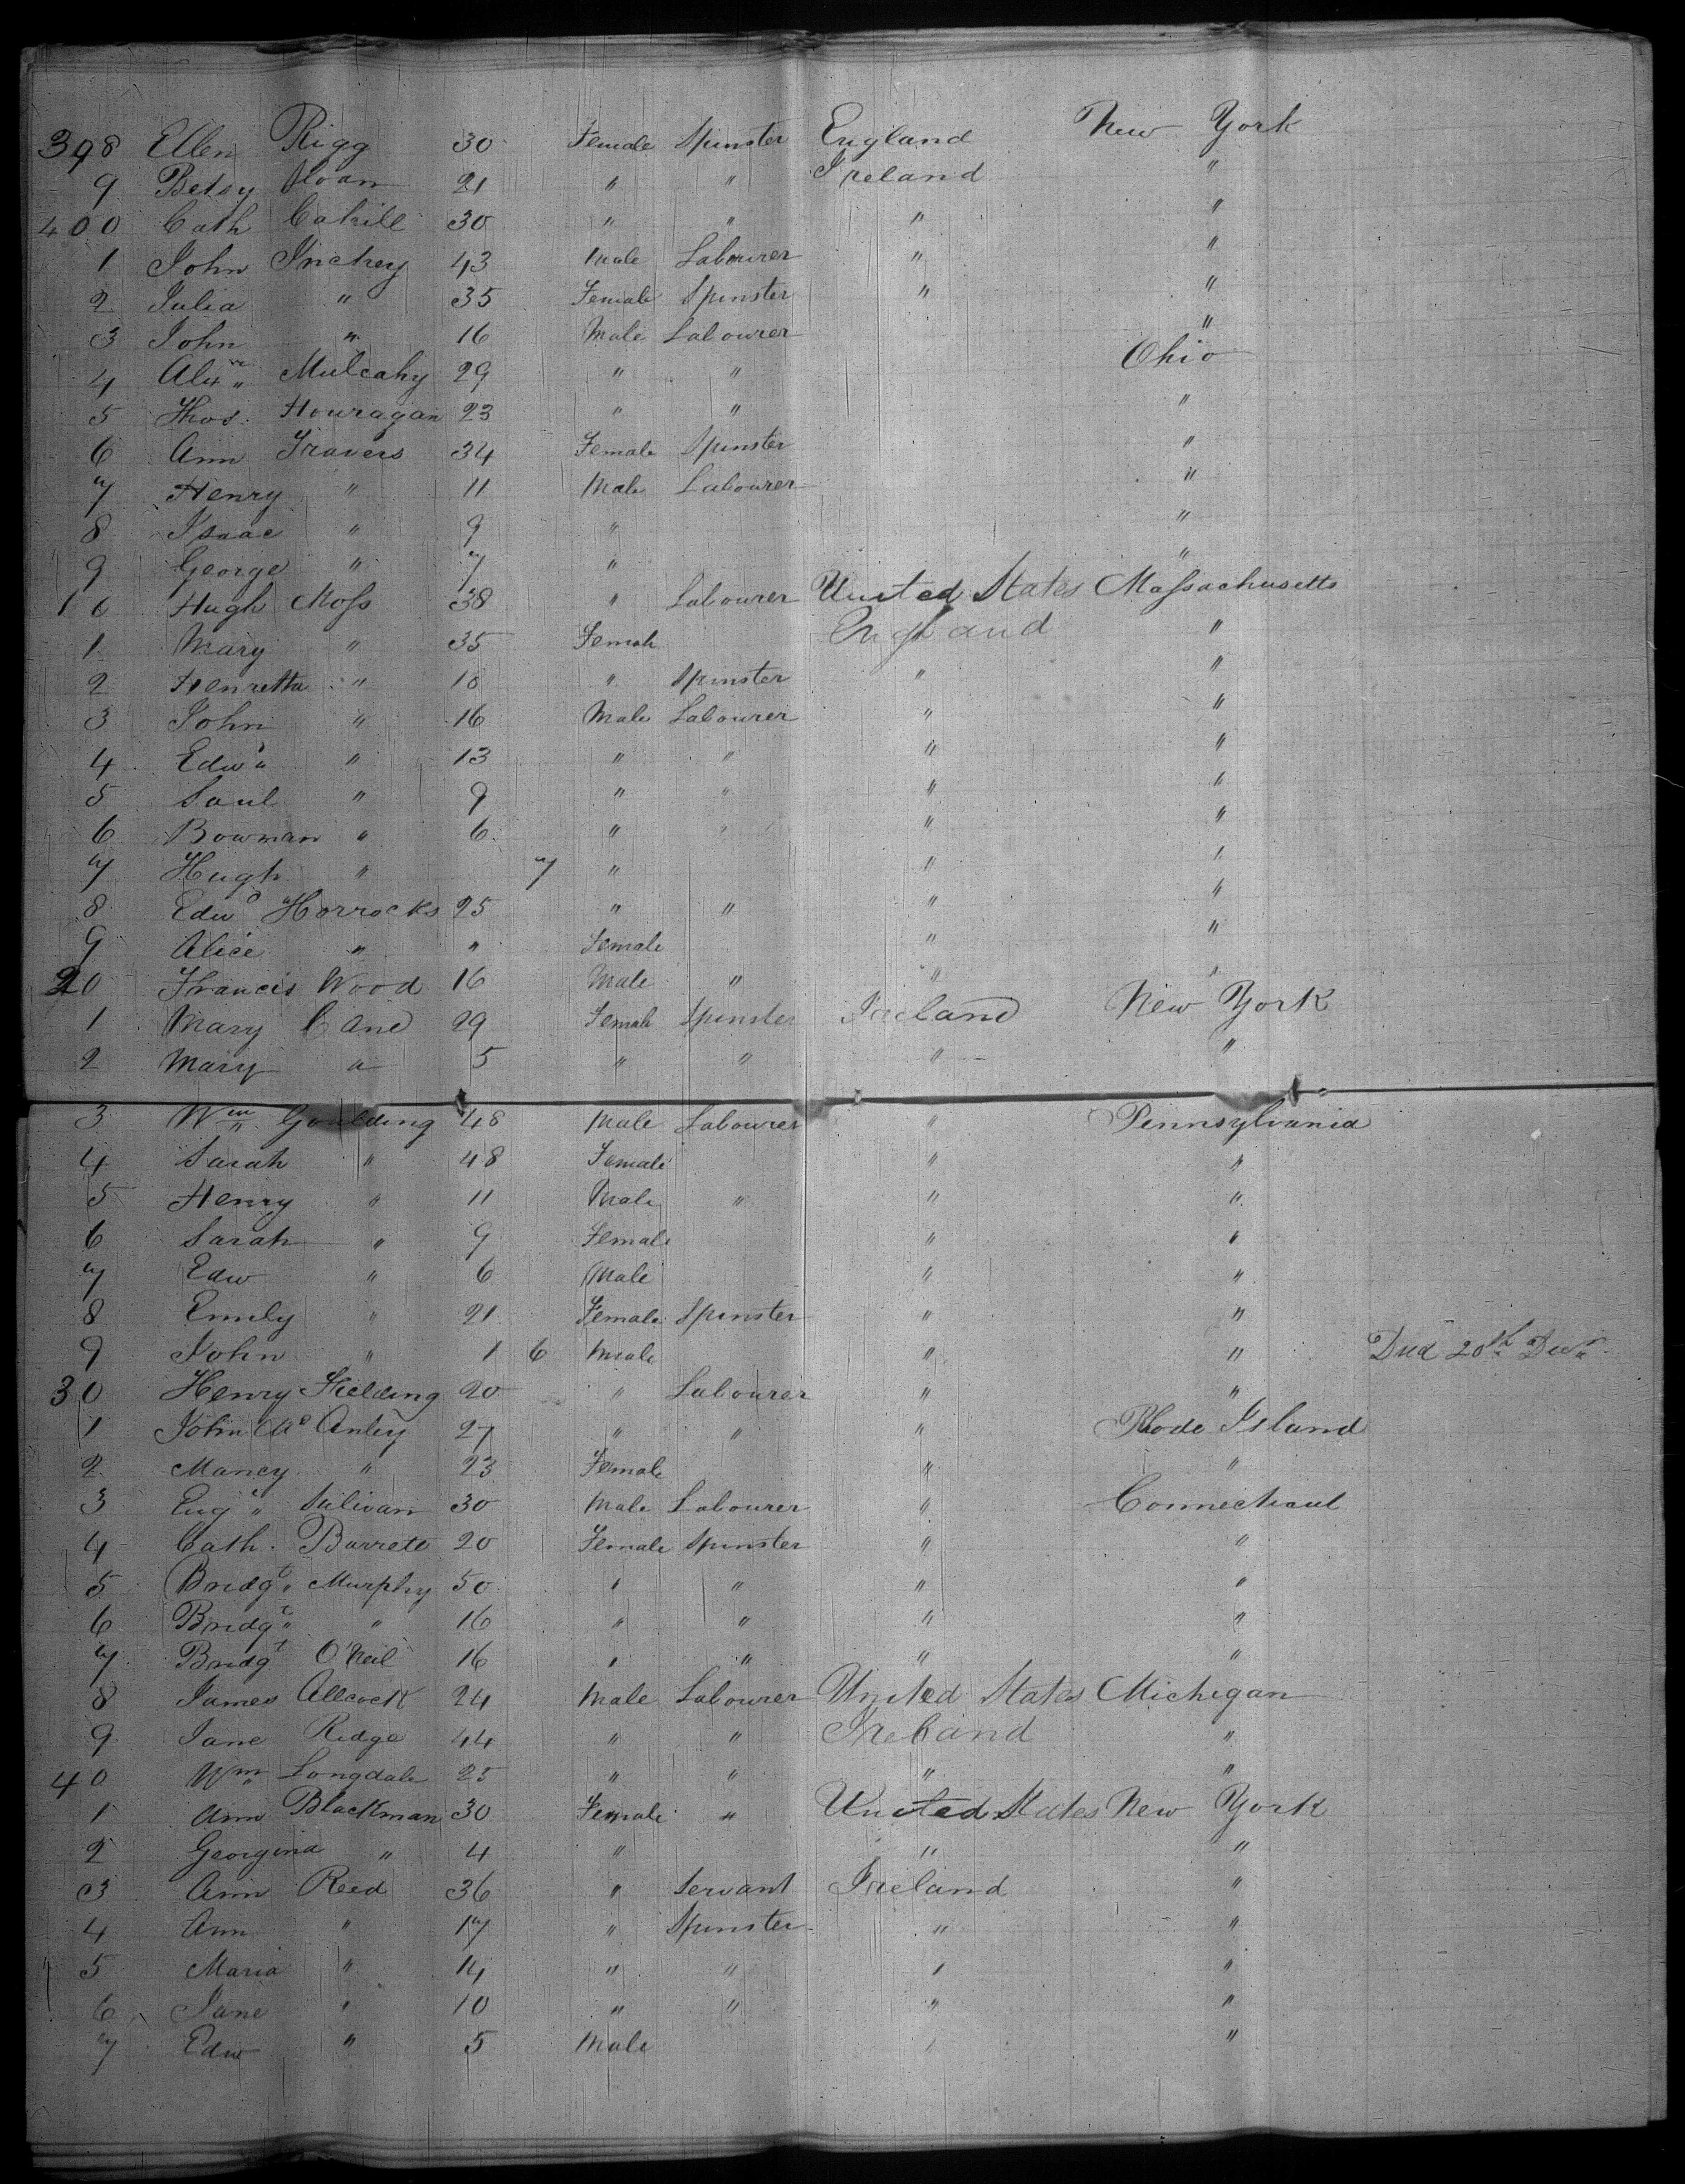 398 Ellen Rigg 30 Female Spinster England New York
9 Betsy Sloan 21 " " Ireland "
400 Cath Cahill 30 " " " "
1 John Inchey 43 Male Labourer " "
2 Julia " 35 Female Spinster " "
3 John " 16 Male Labourer "
4 Alexr Mulcahy 29 " " Ohio
5 Thos. Houragan 23 " " "
6 Ann Travers 34 Female Spinster "
7 Henry " 11 Male Labourer "
8 Isaac " 9 " "
9 George " 7 " "
10 Hugh Moss 38 " Labourer United States Massachusetts
1 Mary " 35 Female England "
2 Henretta " 18 " Spinster " "
3 John " 16 Male Labourer " "
4 Edwd " 13 " " " "
5 Saul " 9 " " " "
6 Bowman " 6 " " " "
7 Hugh " 7 " " "
8 Edwd Horrocks 25 " " " "
9 Alice " " Female " "
20 Francis Wood 16 Male " " "
1 Mary Cane 29 Female Spinster Ireland New York
2 Mary " 5 " " " "
3 Wm Goulding 48 Male Labourer " Pennsylvania
4 Sarah " 48 Female " "
5 Henry " 11 Male " " "
6 Sarah " 9 Female " "
7 Edw " 6 Male " "
8 Emily " 21 Female Spinster " "
9 John " 1 6 Male " " Died 20th Decr
30 Henry Fielding 20 " Labourer " "
1 John Mc Anley 27 " " " Rhode Island
2 Mancy " 23 Female " "
3 Eug " Sulivan 30 Male Labourer " Connecticut
4 Cath. Barrett 20 Female Spinster " "
5 Bridgt Murphy 50 " " " "
6 Bridgt " 16 " " " "
7 Bridgt O'Neil 16 " " " "
8 James Allcock 24 Male Labourer United States Michigan
9 Jane Ridge 44 " " Ireland "
40 Wm Longdale 25 " " " "
1 Ann Blackman 30 Female " United States New York
2 Georgina " 4 " " "
3 Ann Reed 36 " Servant Ireland "
4 Ann " 17 " Spinster " "
5 Maria " 14 " " " "
6 Jane " 10 " " " "
7 Edw " 5 Male " "